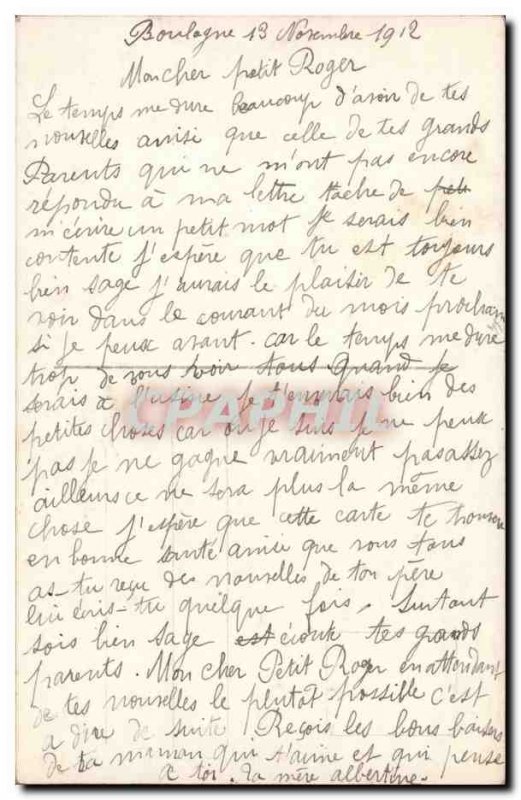 Boulogne 13 Novembre 1912
Mon cher petit Roger
Le temps me dure beaucoup d'avoir de tes
nouvelles ainsi que celle de tes grands
Parents qui ne m'ont pas encore
répondu à ma lettre tache de
m'écrire un petit mot je serais bien
contente j'espère que tu est toujours
bien sage j'aurais le plaisir de te
voir dans le courant du mois prochain
si je peux avant. car le temps me dure
trop de vous voir tous Quand je
serais à l'usine je t'enverais bien des
petites choses car ou je suis je ne peux
pas je ne gagne vraiment pas assez
ailleurs ce ne sera plus la même
chose j'espère que cette carte te trouvera
en bonne santé ainsi que vous tous
as-tu reçu des nouvelles de ton père
lui écris-tu quelque fois. Surtout
sois bien sage est écoute tes grands
parents. Mon cher Petit Roger en attendant
de tes nouvelles le plutot possible c'est
a dire de suite Reçois les bons baisers
de ta maman qui t'aime et qui pense
a toi. Ta mère albertine.
CPAPHIL